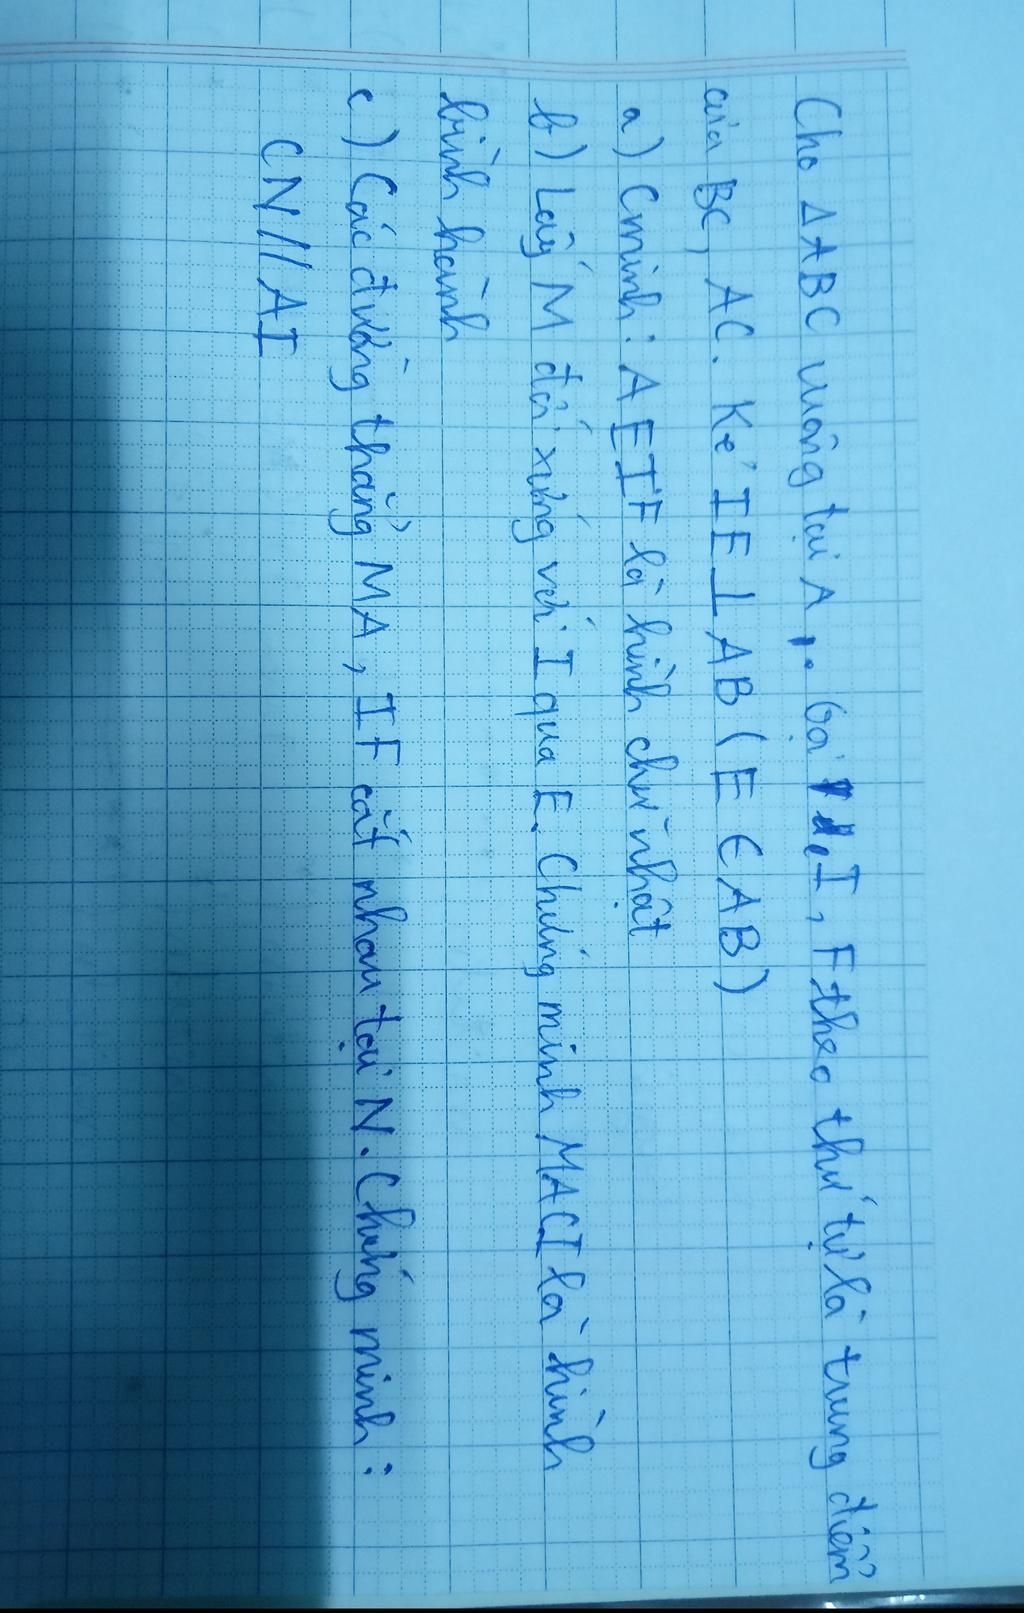 Cho ΔABC vuông tại A, . Gọi I, F theo thứ tự là trung điểm
của BC, AC. Kẻ IE ⊥ AB ( E ∈ AB )
a) Cminh : AEIF là hình chữ nhật
b) Lấy M đối xứng với I qua E. Chứng minh MACI là hình
bình hành
c) Các đường thẳng MA, IF cắt nhau tại N. Chứng minh :
CN // AI